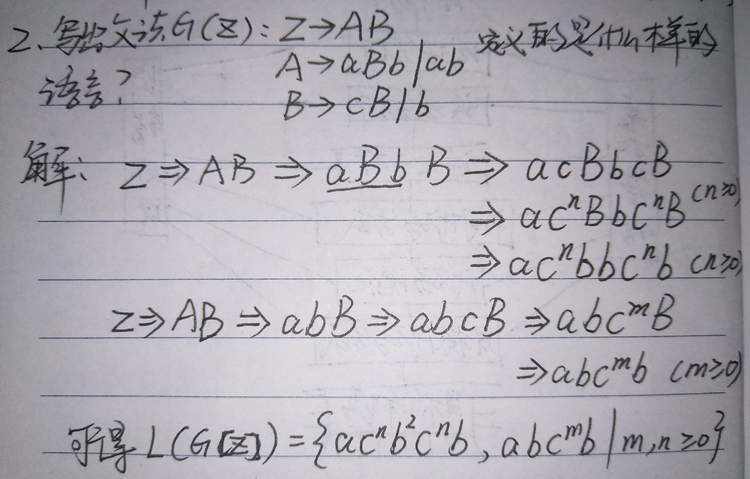 2、写出文法G(Z): Z→AB 定义的是什么样的
A→aBb|ab
语言?
B→cB|b
解: Z⇒AB⇒aBbB⇒acBbcB
⇒acⁿBbcⁿB (n≥0)
⇒acⁿbbcⁿb (n≥0)
Z⇒AB⇒abB⇒abcB⇒abcᵐB
⇒abcᵐb (m≥0)
可得 L(G[Z])={acⁿb²cⁿb, abcᵐb|m,n≥0}